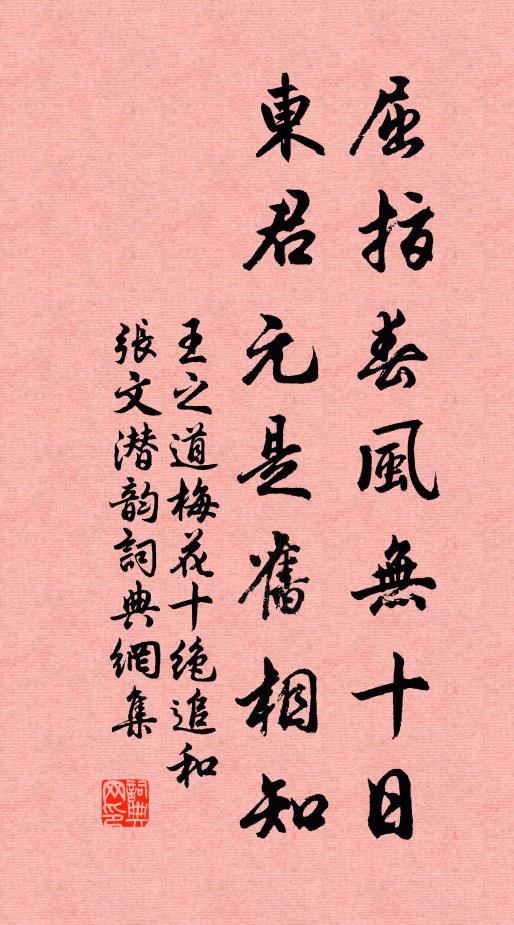 屈指春風無十日
東君元是舊相知
王之道梅花十絶追和
張文潛韵詞典網集
詞典網印